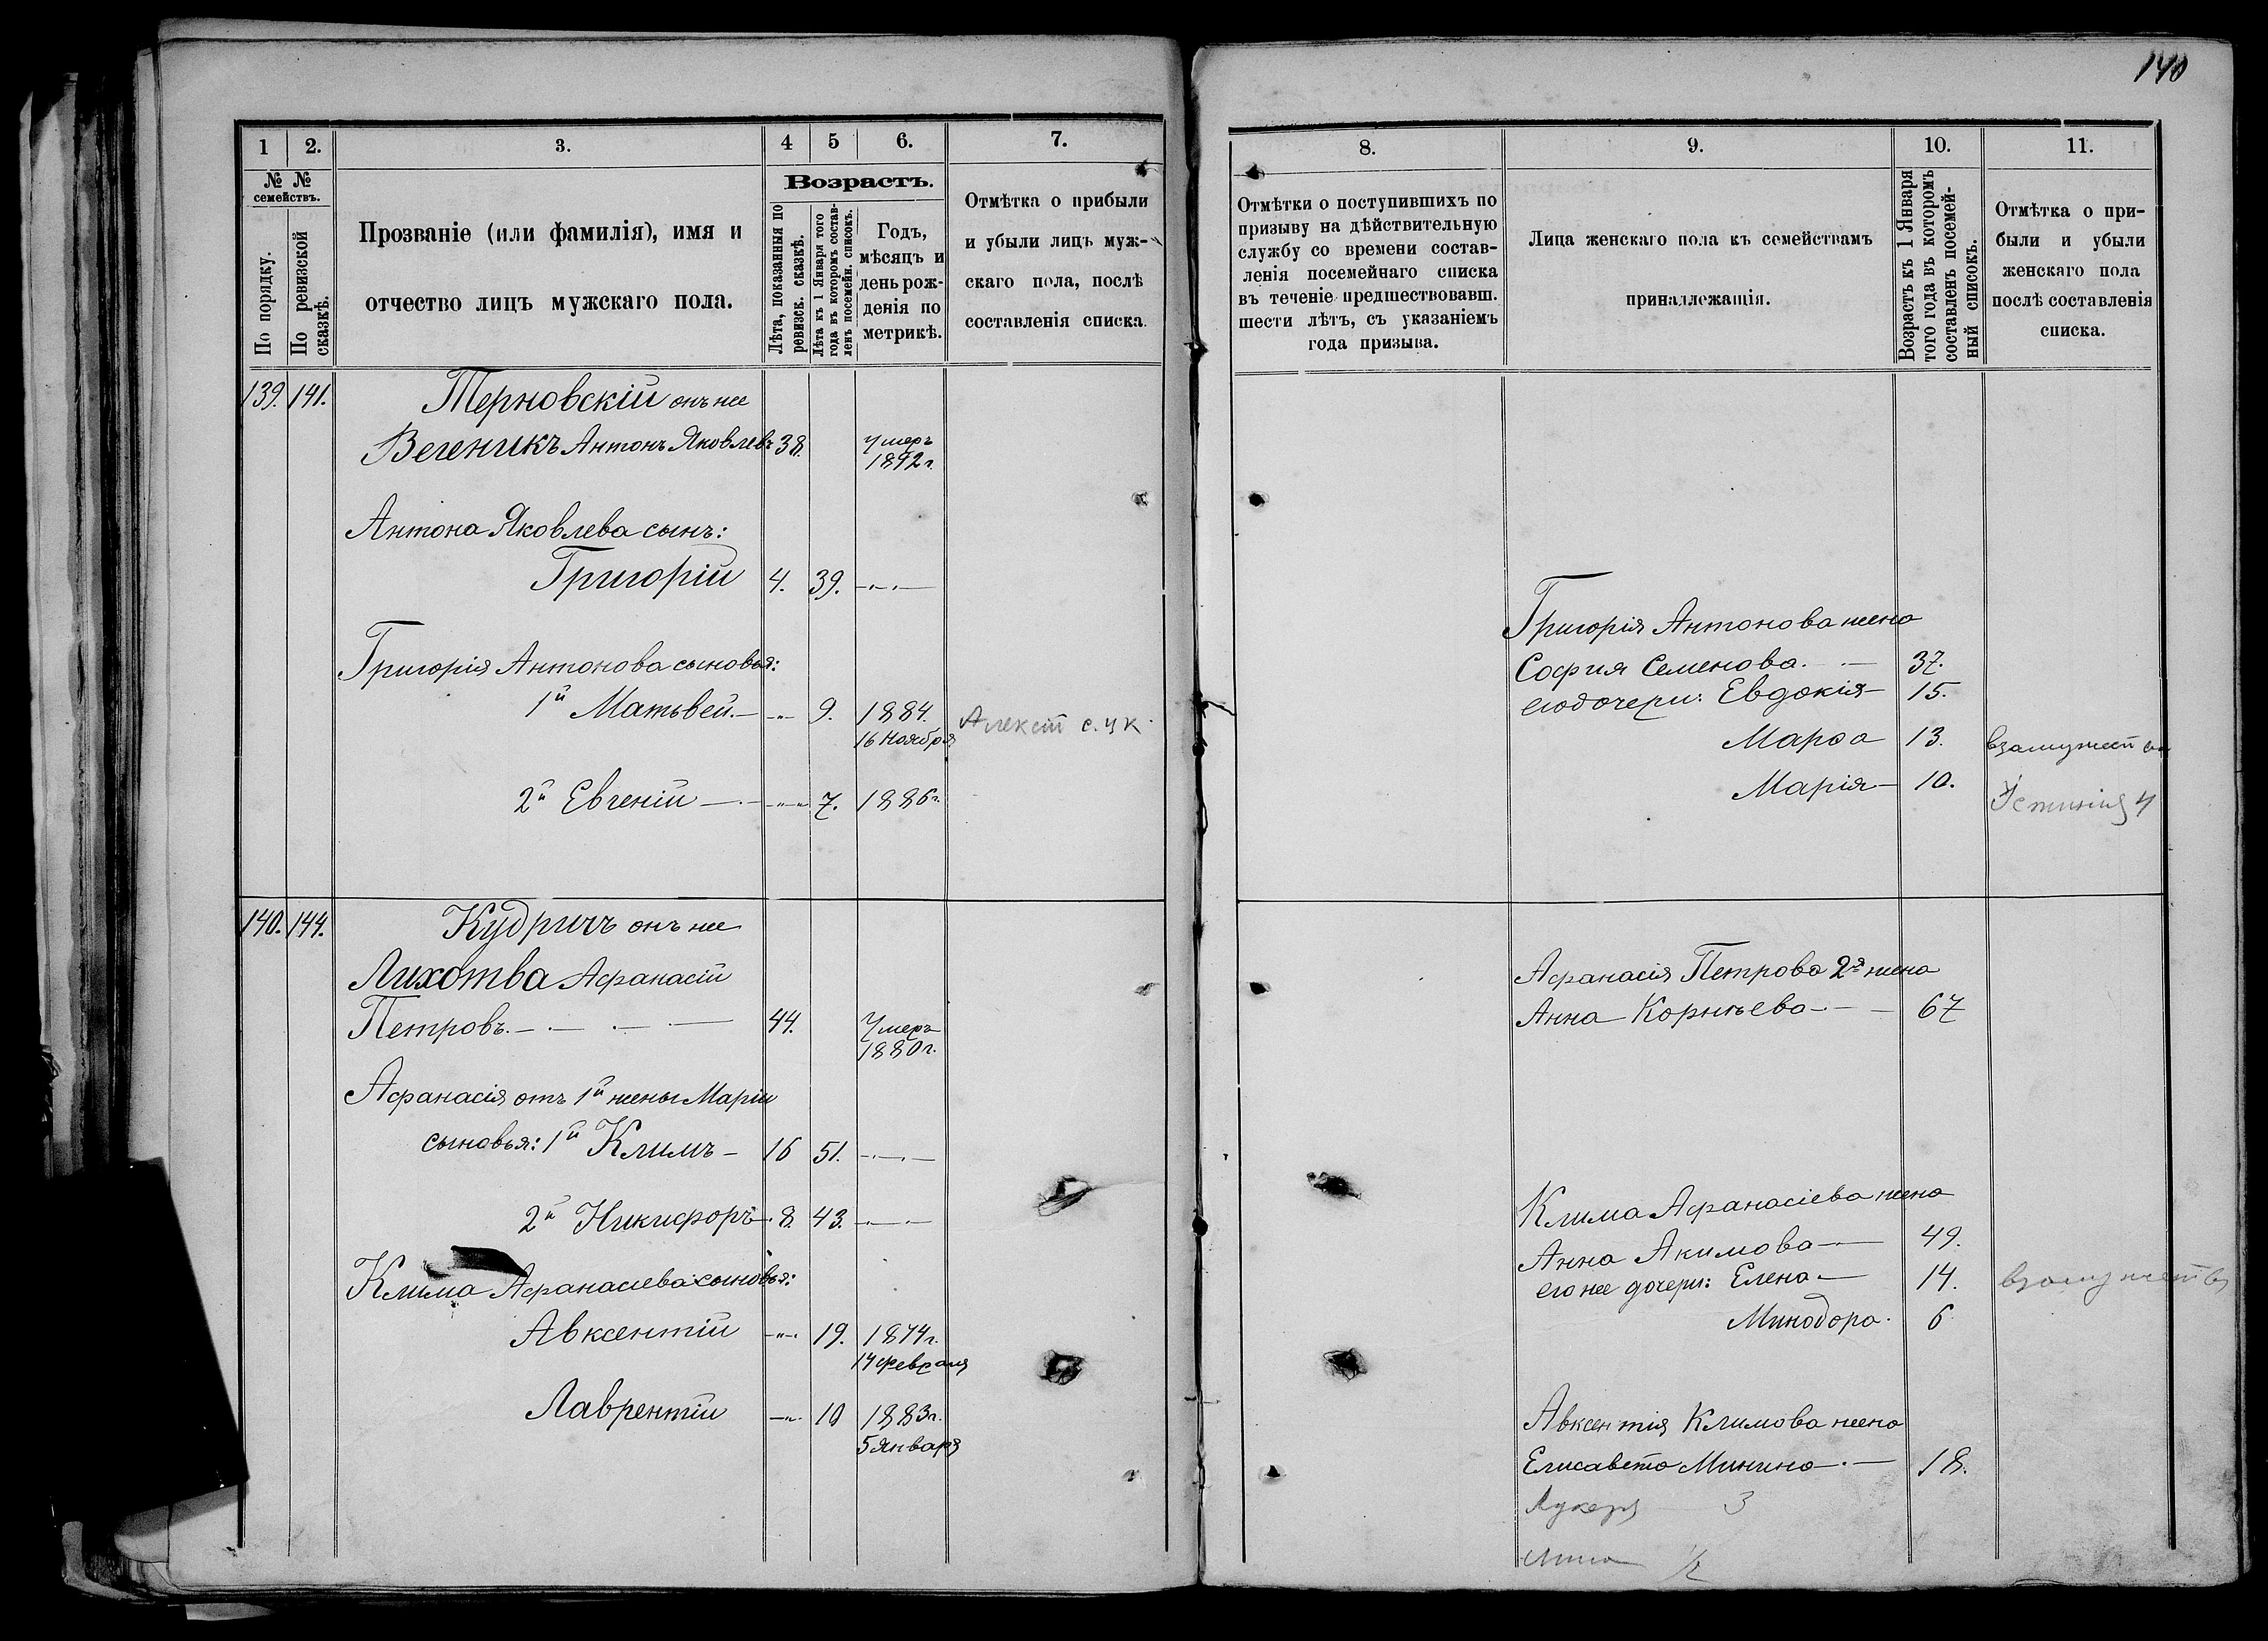 140
1
2.
3.
4
5
6.
7.
№ №
семействъ.
По порядку.
По ревизской сказкѣ.
Прозваніе (или фамилія), имя и
отчество лицъ мужскаго пола.
Возрастъ.
Лѣта, показанныя по ревизск. сказкѣ.
Лѣта къ 1 Января того года въ которомъ составленъ посемейн. списокъ.
Годъ,
мѣсяцъ и
день рож-
денія по
метрикѣ.
Отмѣтка о прибыли
и убыли лицъ муж-
скаго пола, послѣ
составленія списка.
139. 141. Терновскій онъ же
Вегеникъ Антонъ Яковлевъ 38. Умеръ
1892 г.
Антона Яковлева сынъ:
Григорій 4. 39.
Григорія Антонова сыновья:
1й Матвѣй 9. 1884.
16 Ноября
Алексѣй
2й Евгеній 7. 1886 г.
140. 144. Кудричъ онъ же
Лихотва Афанасій
Петровъ 44. Умеръ
1880 г.
Афанасія отъ 1й жены Маріи
сыновья: 1й Климъ 16 51.
2й Никифоръ 8. 43.
Клима Афанасіева сыновья:
Авксентій 19. 1874 г.
14 февраля
Лаврентій 10 1883 г.
5 Января
8.
9.
10.
11.
Отмѣтки о поступившихъ по
призыву на дѣйствительную
службу со времени состав-
ленія посемейнаго списка
въ теченіе предшествовавш.
шести лѣтъ, съ указаніемъ
года призыва.
Лица женскаго пола къ семействамъ
приналлежащія.
Возрастъ къ 1 Января
того года въ которомъ
составленъ посемей-
ный списокъ.
Отмѣтка о при-
были и убыли
женскаго пола
послѣ составленія
списка.
Григорія Антонова жена
София Семенова 37.
его дочери: Евдокія 15.
Марѳа 13. взамужест
Марія 10.
Устинія 4
Афанасія Петрова 2я жена
Анна Корнѣева 67
Клима Афанасіева жена
Анна Акимова 49.
его же дочери: Елена 14. взамужеств
Минодора 6
Авксентія Климова жена
Елисавета Минина 18.
Лукеря 3